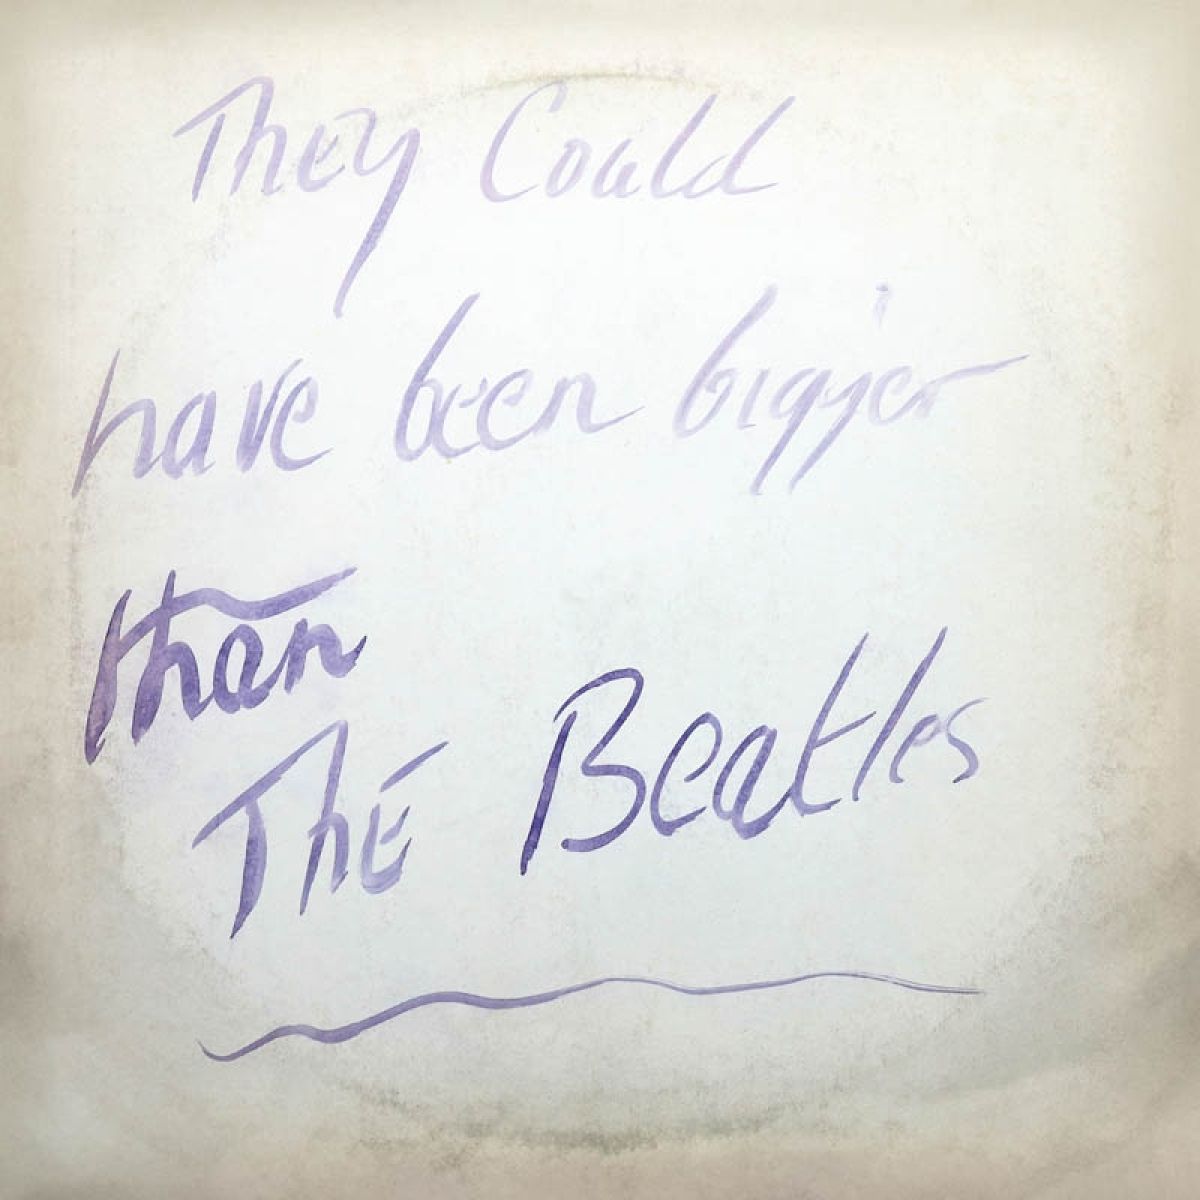 They Could
have been bigger
than
The Beatles